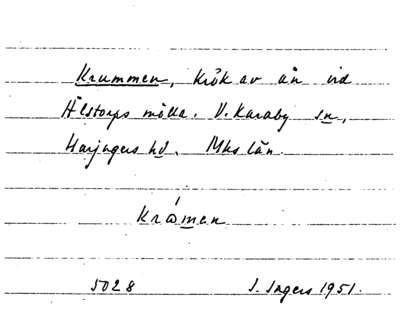 Krummen, Krök av ån vid
Älstorps mölla. V. Karaby sn,
Harjagers hd. Mhs län.
Krømen
5028 I. Ingers 1951.